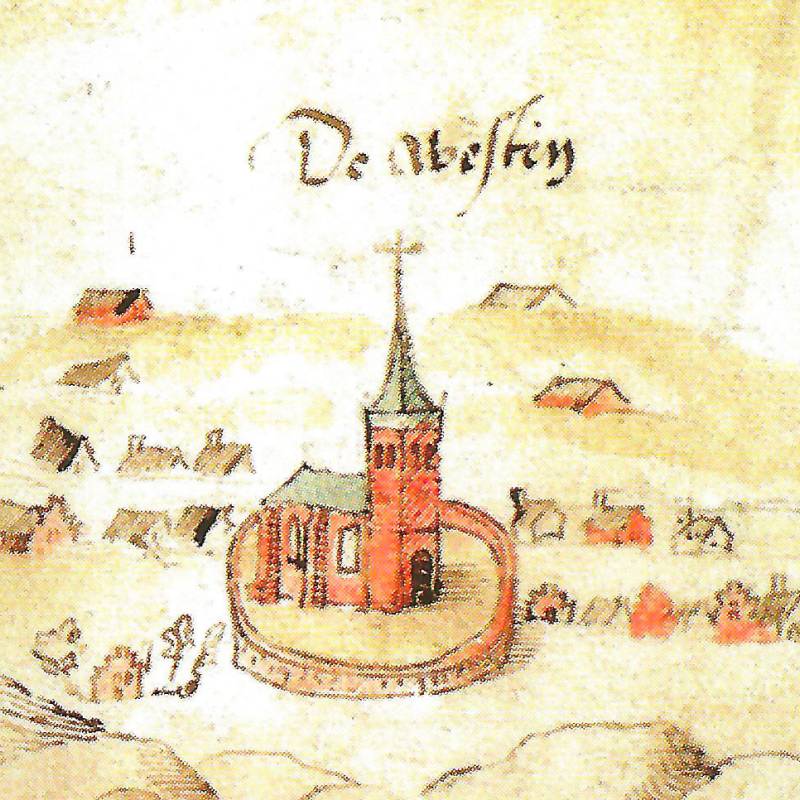 De westen